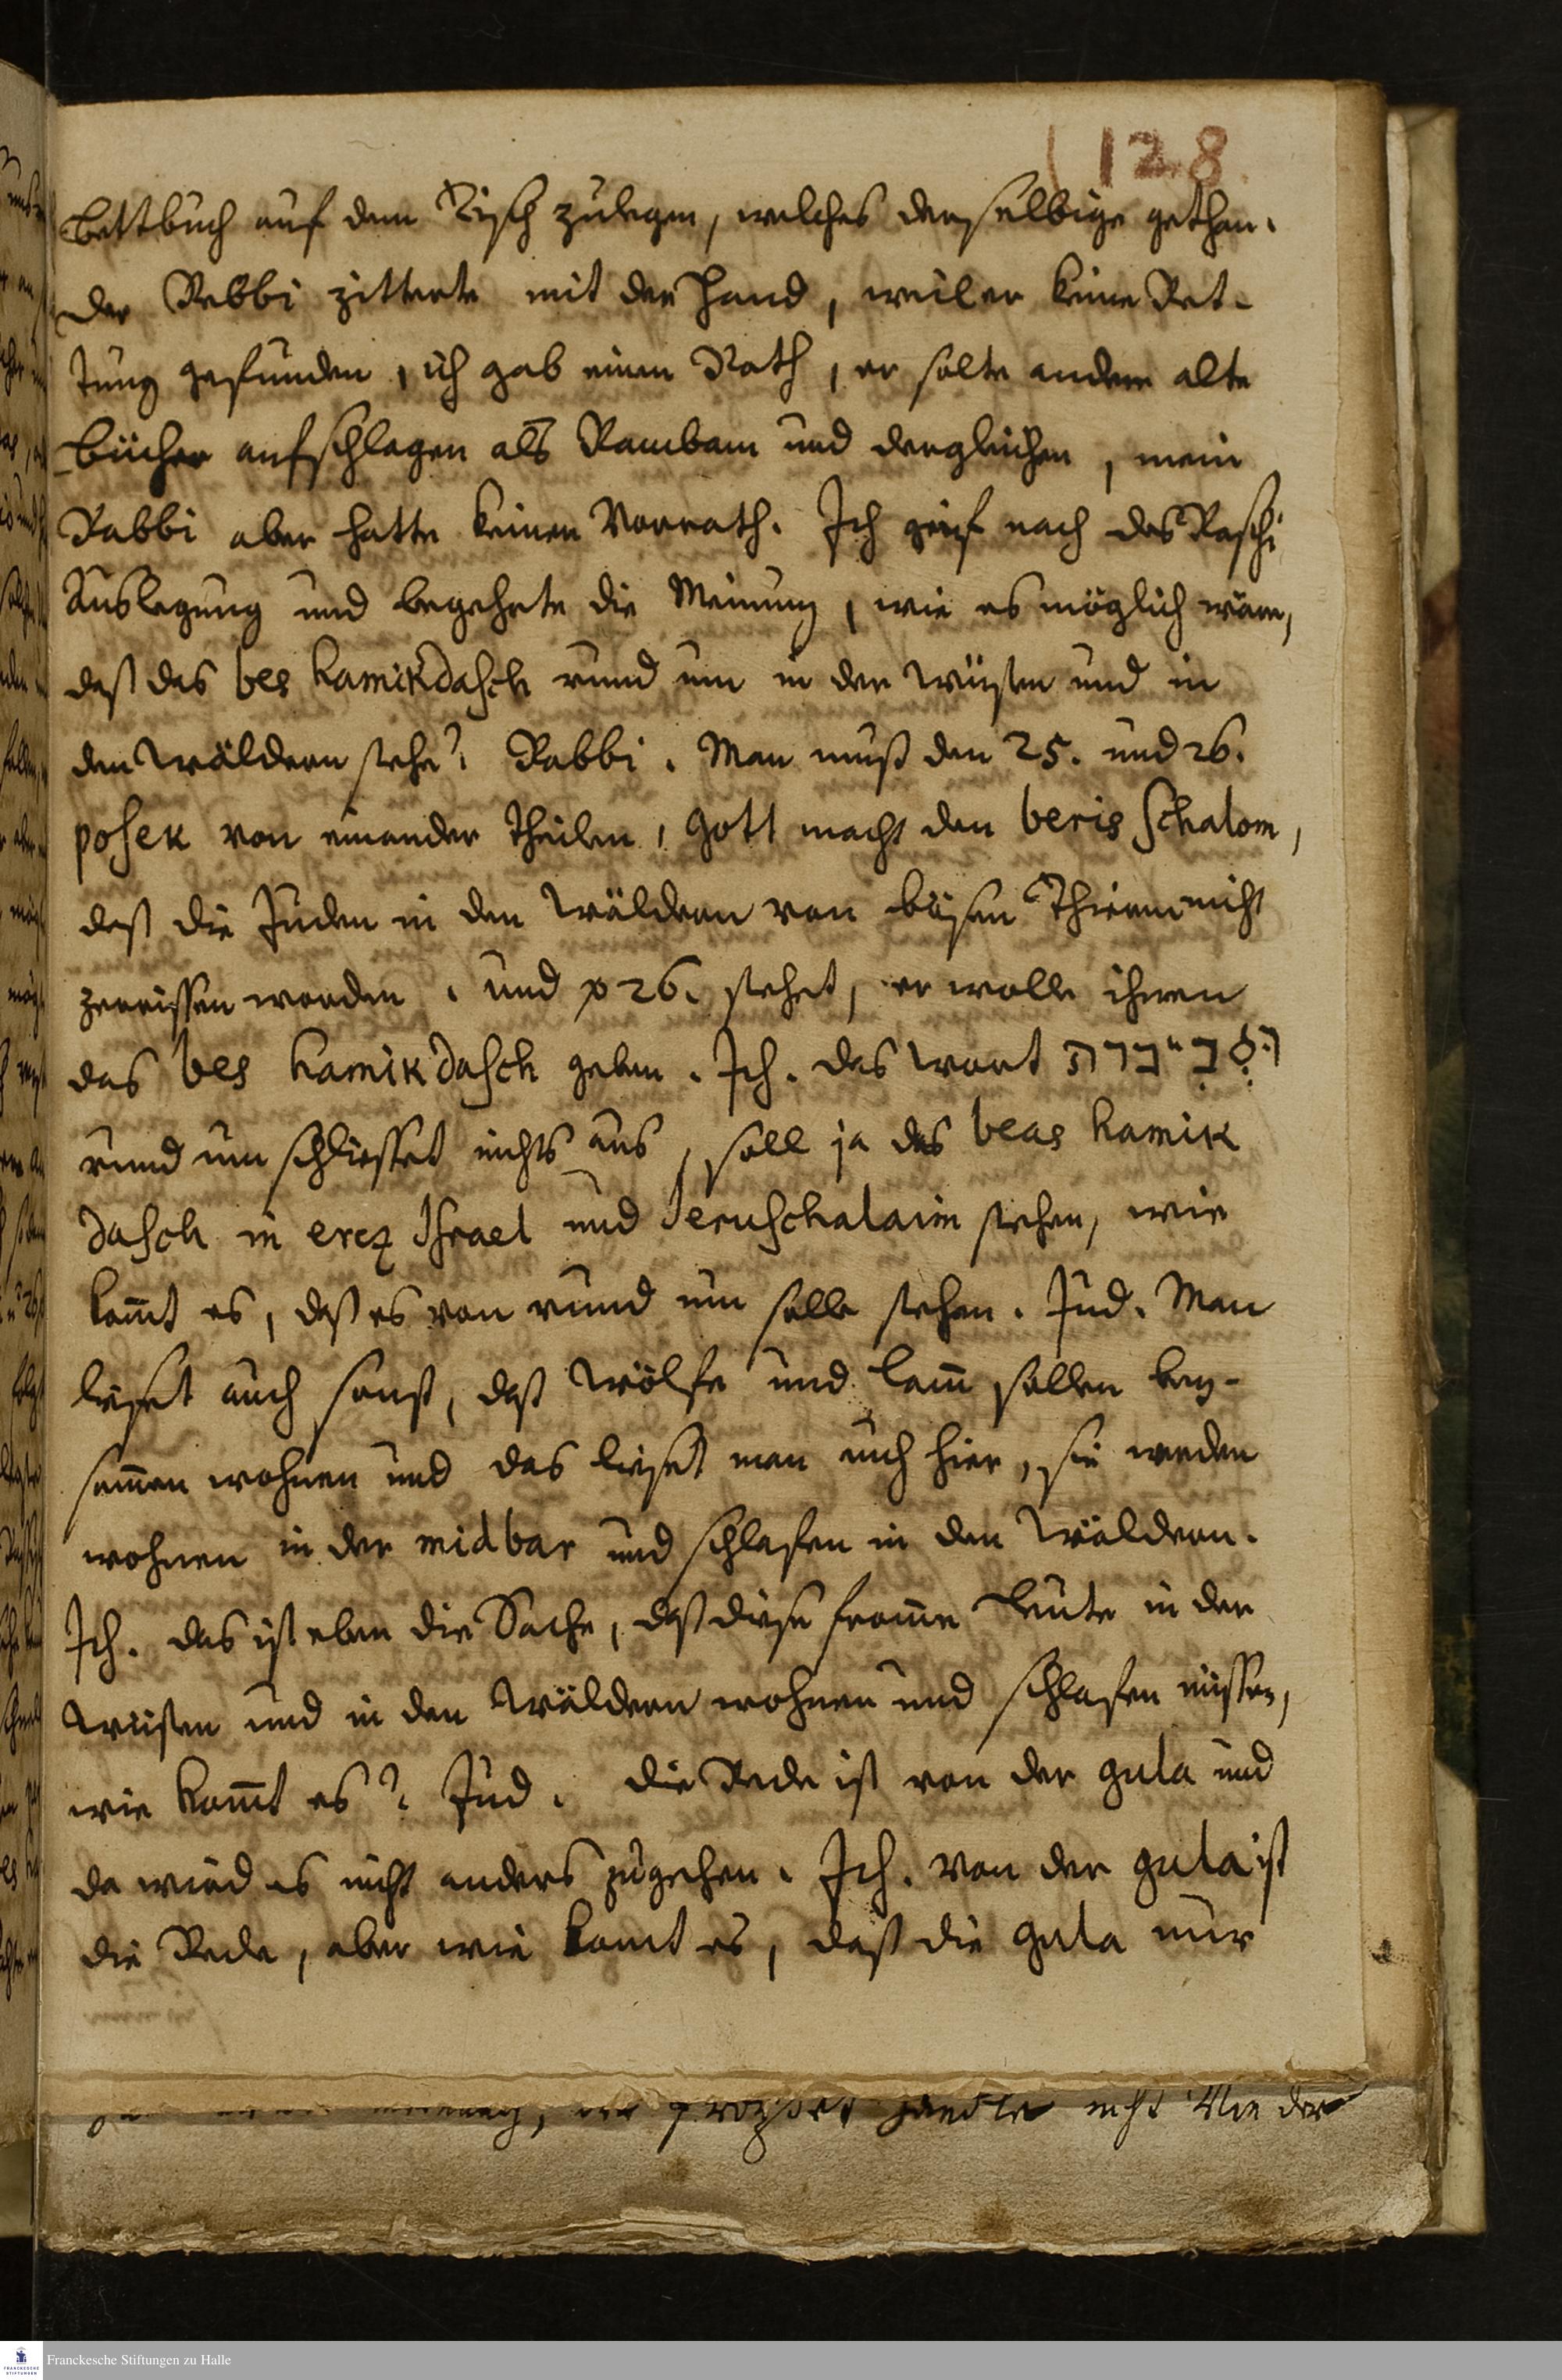 128.
Bettbuch auf dem Tisch zulegen, welches derselbige gethan.
der Rebbi zitterte mit der Hand, weil er keine Ret-
tung gefunden, ich gab einen Rath, er solte andere alte
Bücher aufschlagen als Rambam und dergleichen, mein
Rabbi aber hatte keinen Vorrath. Ich grif nach des Raschi
Auslegung und begehrte die Meinung, wie es möglich wäre,
daß das bes hamikdasch rund um in der Wüsten und in
den Wäldern stehe? Rabbi. Man muß den 25. und 26.
posek von einander theilen, Gott macht den beris schalom,
daß die Juden in den Wäldern von bösen Thieren nicht
zerrissen worden. und p 26. stehet, er wolle ihnen
das bes hamikdasch geben. Ich. das wort
rund um schliesset nichts aus, soll ja das beas hamik
dasch in erez Israel und Jeruschalaim stehen, wie
komt es, daß es von rund um solle stehen. Jud. Man
lieset auch sonst, daß Wölfe und Lamm sollen bey-
sammen wohnen und das lieset man auch hier, sie werden
wohnen in der midbar und schlafen in den Wäldern.
Ich. das ist eben die Sache, daß diese fromme Leute in der
Wüsten und in den Wäldern wohnen und schlafen müssen,
wie kommt es? Jud. die Rede ist von der gula und
da wird es nicht anders zugehen. Ich. von der gula ist
die Rede, aber wie komt es, daß die gula nur
handle nicht Von der
Franckesche Stiftungen zu Halle